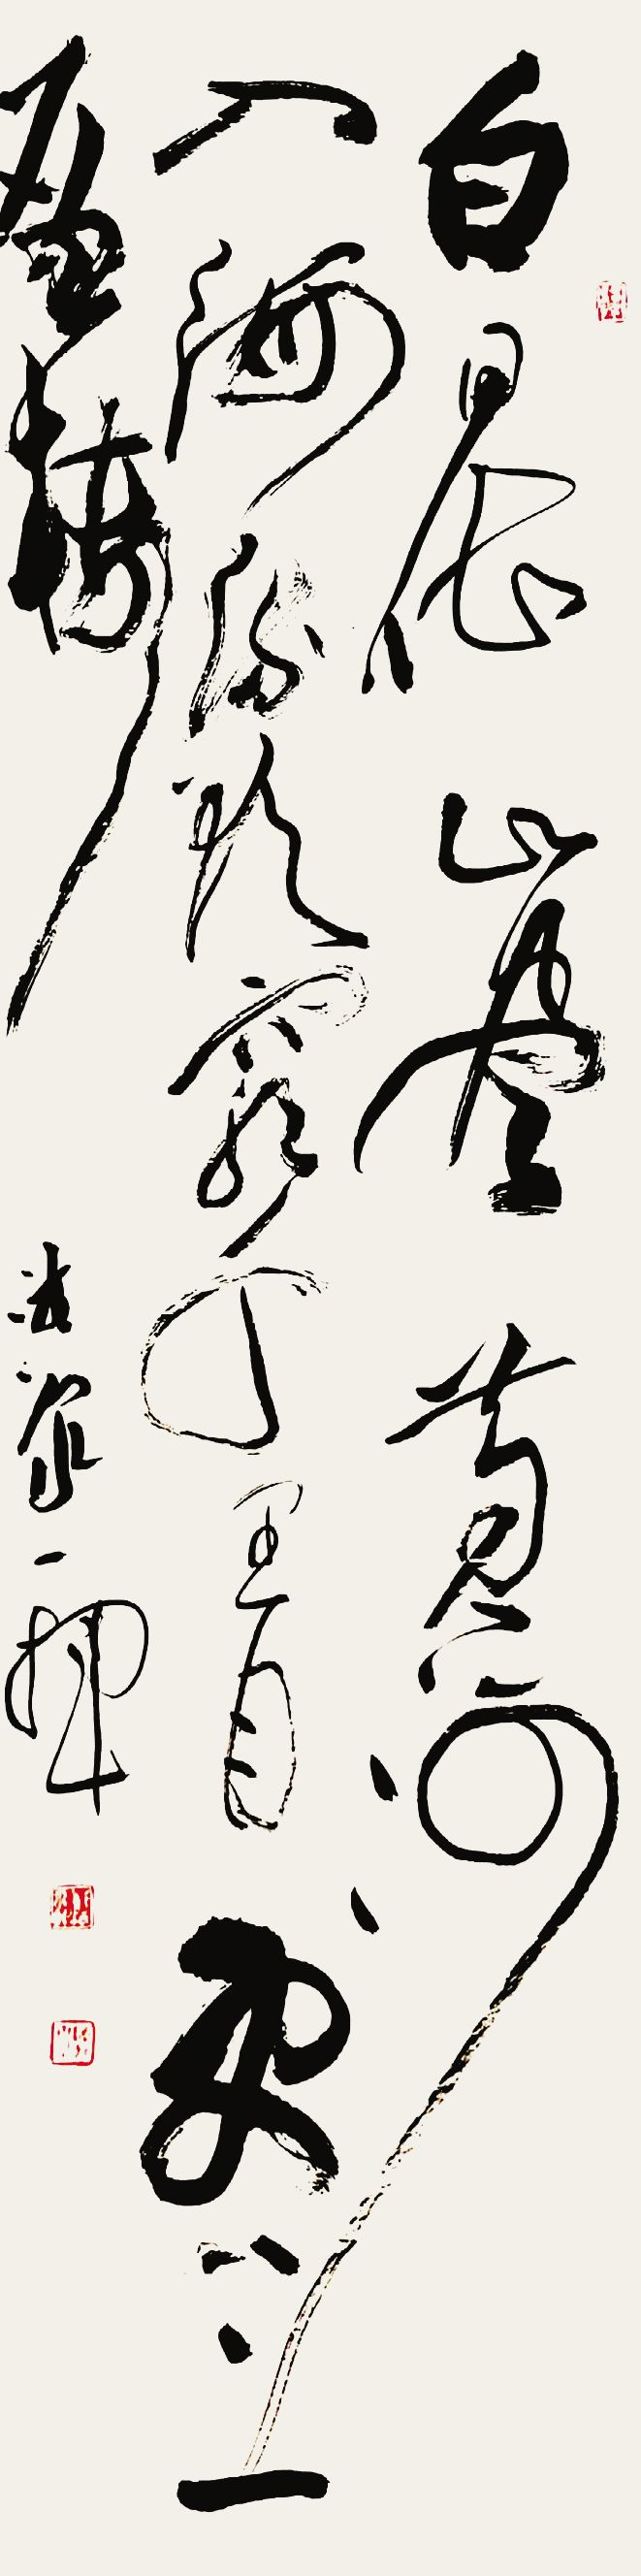 白日依山盡黄河
入海流欲窮千里目更上一
層樓